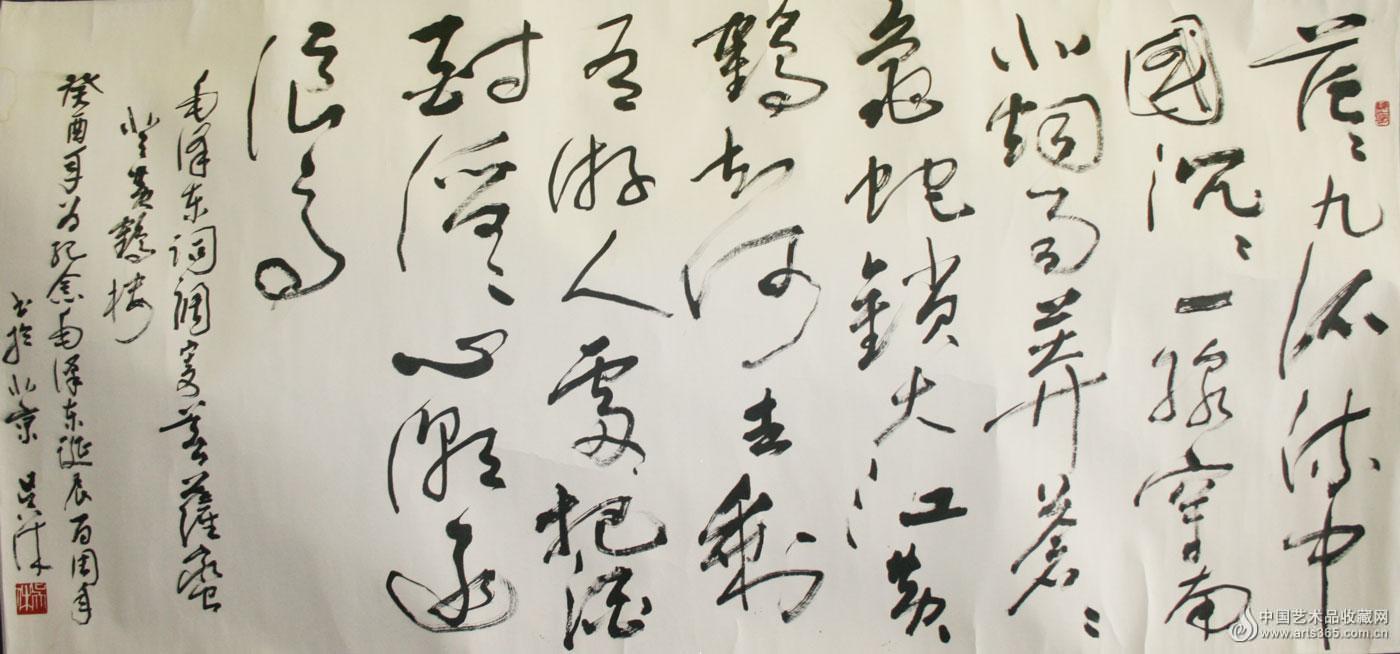 茫〻九派流中
國沉〻一線穿南
北烟雨莽蒼〻
龜蛇鎖大江黄
鶴知何去剩
有游人處把酒
酹滔〻心潮逐
浪高
毛澤东词調寄菩薩蛮
登黄鶴楼
癸酉年为纪念毛澤东诞辰百周年
书於北京 吴
中国艺术品收藏网
www.arts365.com.cn